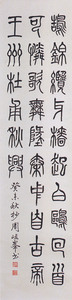 鵠錦纜牙檣起白鷗回首
可憐歌舞地秦中自古帝
王州杜甫秋興
癸未秋抄周峯書